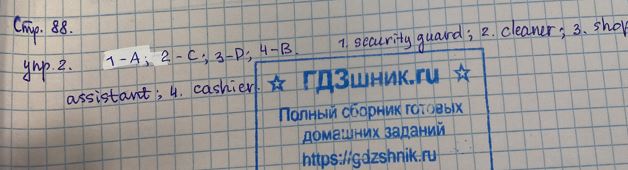 Стр. 88.
упр. 2. 1-A; 2-C; 3-D; 4-B. 1. security guard; 2. cleaner; 3. shop
assistant; 4. cashier.
ГДЗшник.ru
Полный сборник готовых
домашних заданий
https://gdzshnik.ru